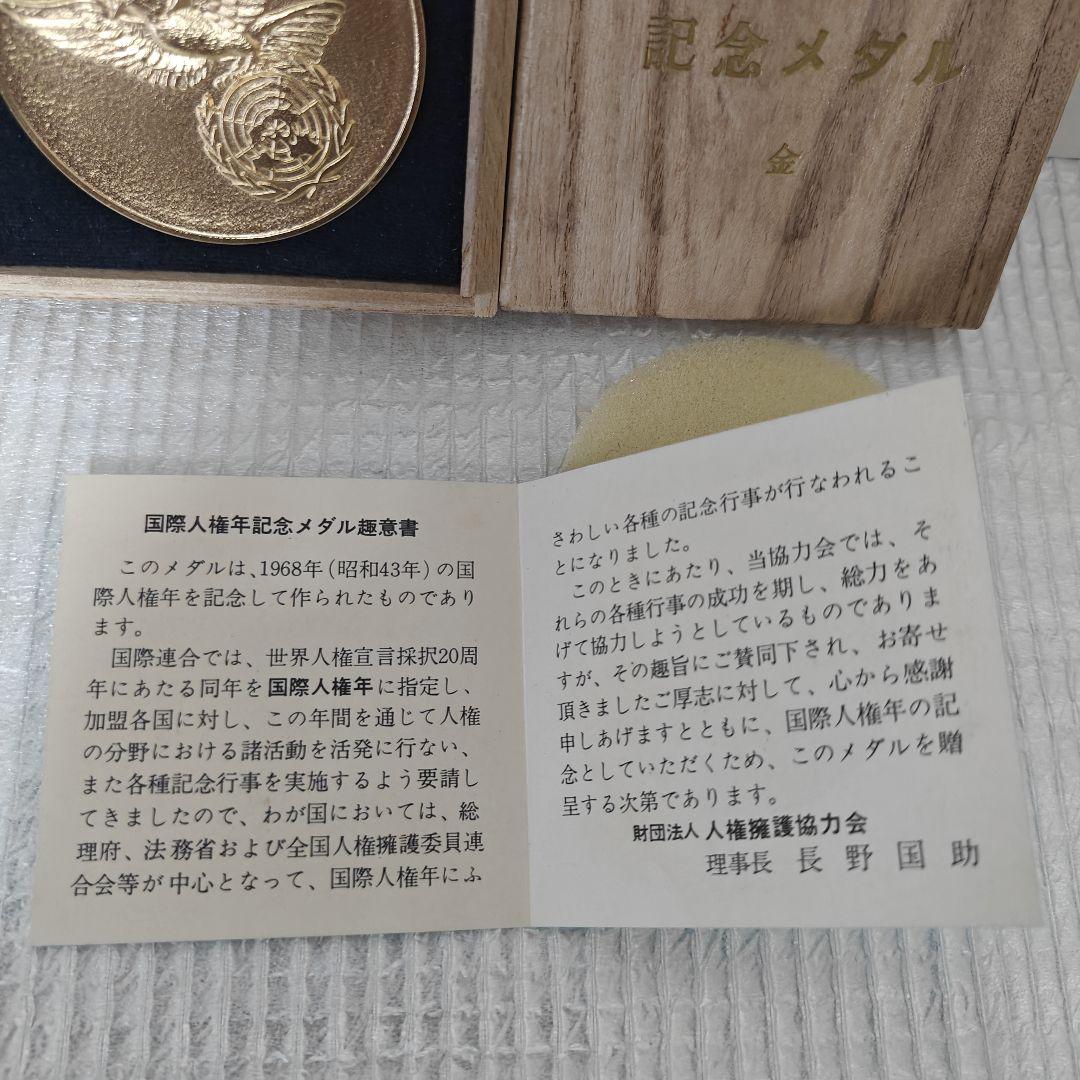 記念メダル
金
国際人権年記念メダル趣意書
このメダルは、1968年(昭和43年)の国
際人権年を記念して作られたものであり
ます。
国際連合では、世界人権宣言採択20周
年にあたる同年を国際人権年に指定し、
加盟各国に対し、この年間を通じて人権
の分野における諸活動を活発に行ない、
また各種記念行事を実施するよう要請し
てきましたので、わが国においては、総
理府、法務省および全国人権擁護委員連
合会等が中心となって、国際人権年にふ
さわしい各種の記念行事が行なわれるこ
とになりました。
このときにあたり、当協力会では、そ
れらの各種行事の成功を期し、総力をあ
げて協力しようとしているものでありま
すが、その趣旨にご賛同下され、お寄せ
頂きましたご厚志に対して、心から感謝
申しあげますとともに、国際人権年の記
念としていただくため、このメダルを贈
呈する次第であります。
財団法人 人権擁護協力会
理事長 長野国助